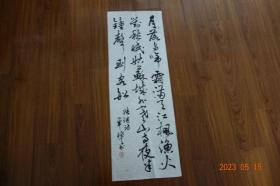 月落烏啼霜滿天江楓漁火
對愁眠姑蘇城外寒山寺夜半
鐘聲到客船
張繼詩
2023 05 15